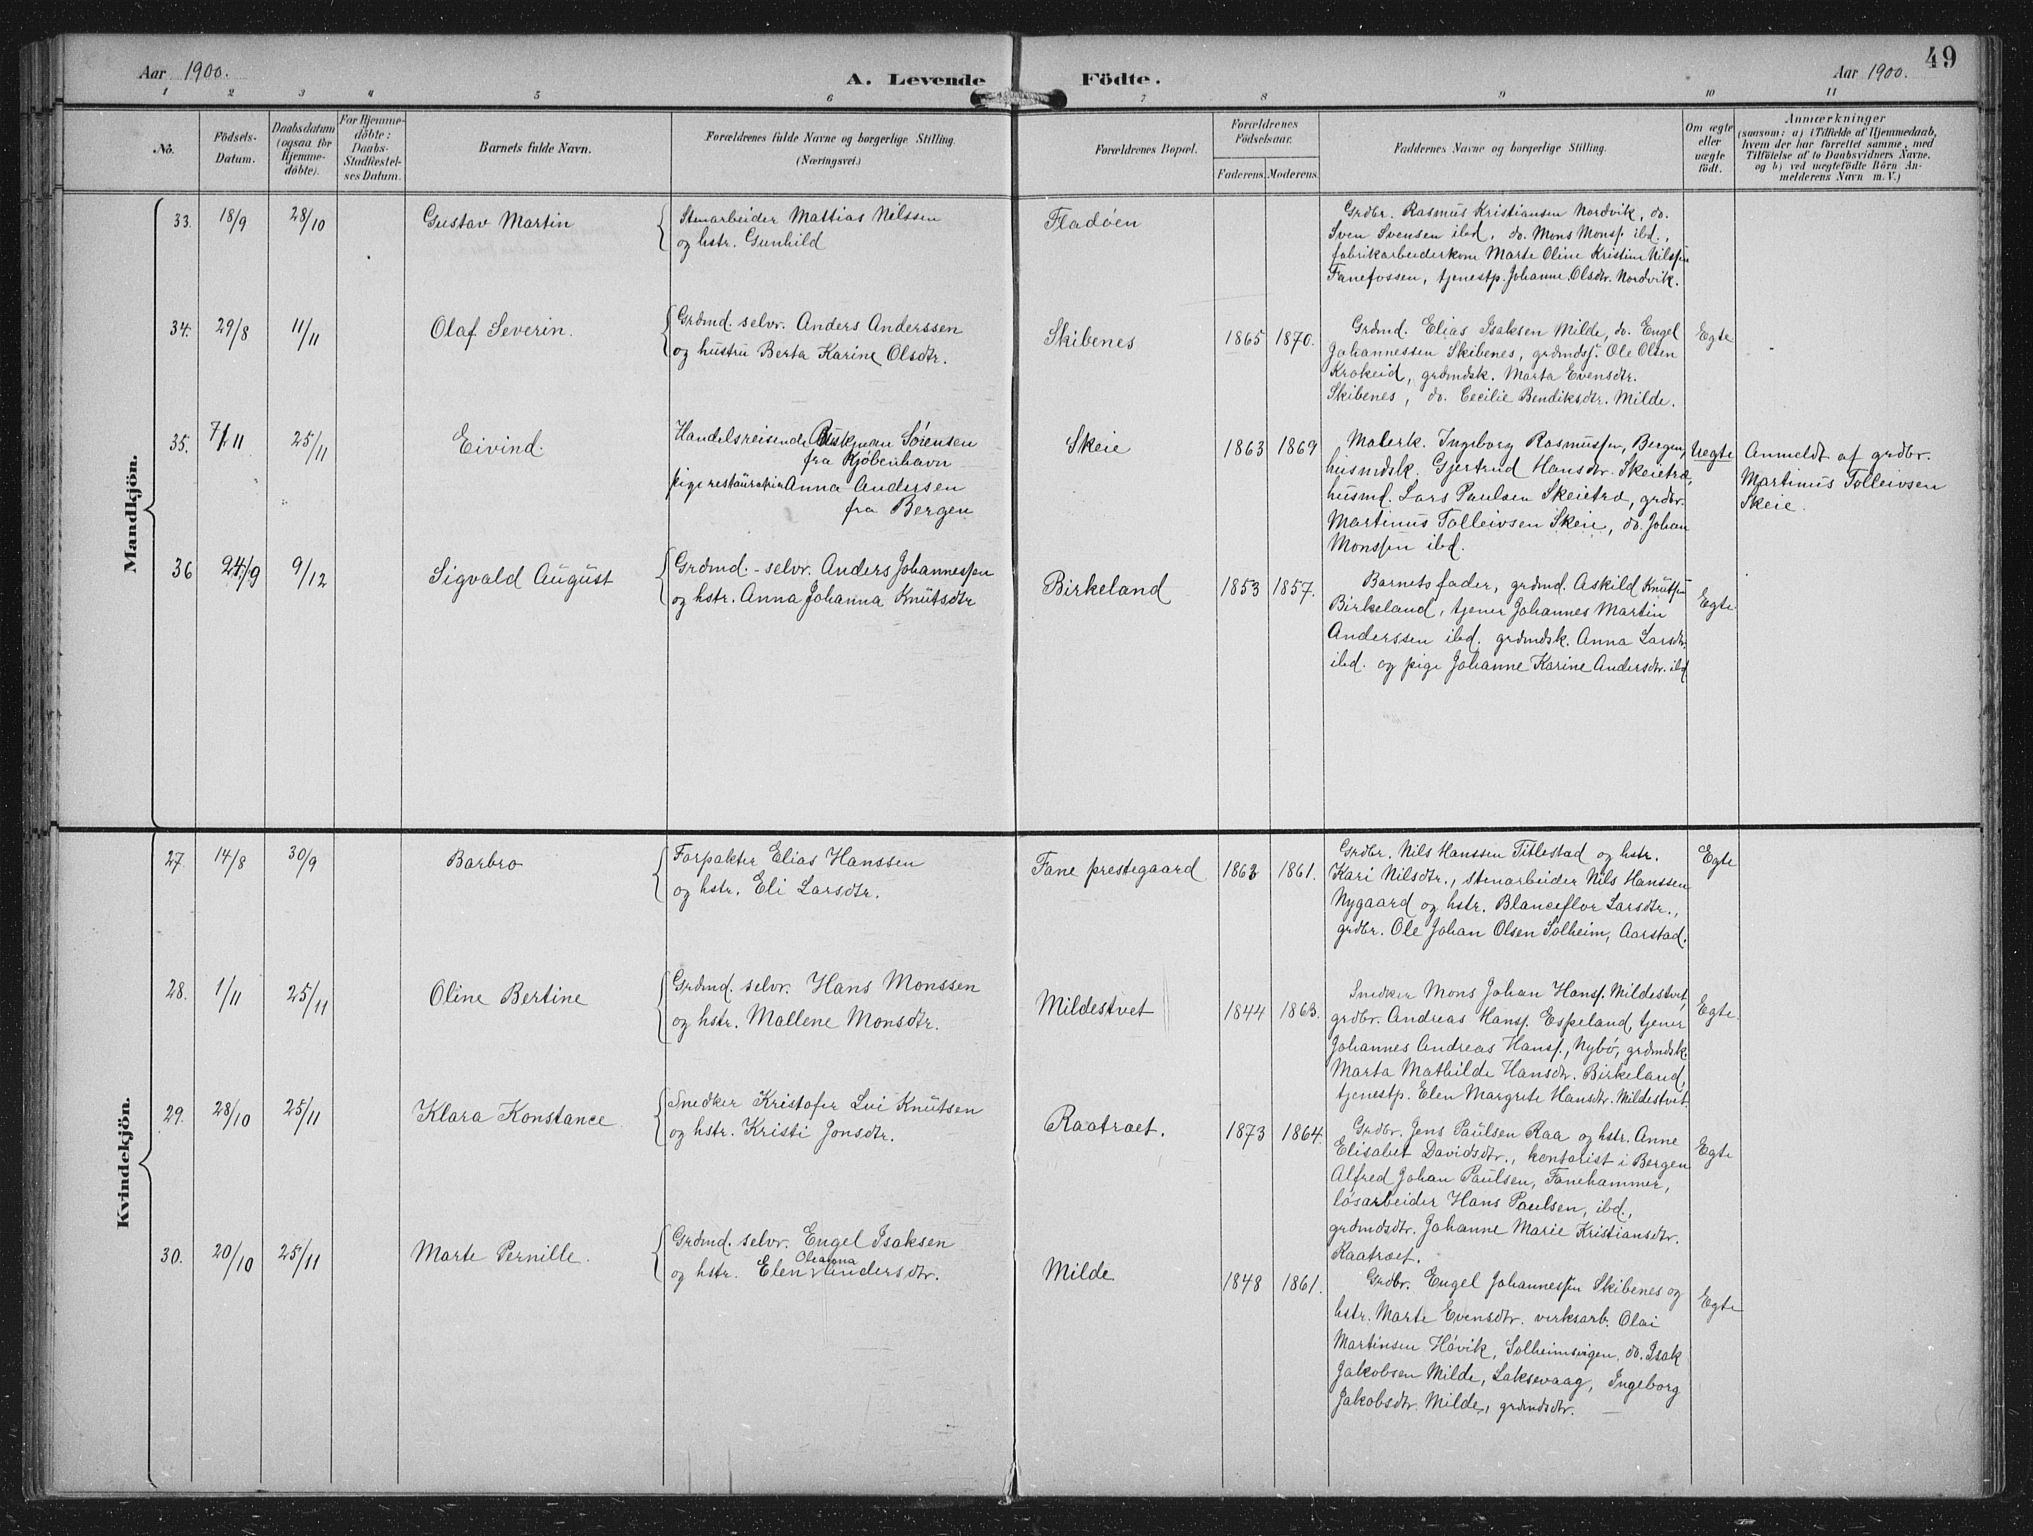 49
Aar 1900.
A. Levende Födte.
Aar 1900.
1 2 3 4 5 6 7 8 9 10 11
No.
Födsels-
Datum.
Daabsdatum
(ogsaa for
Hjemme-
döbte).
For Hjemme-
döbte:
Daabs-
Stadfæstel-
ses Datum.
Barnets fulde Navn.
Forældrenes fulde Navne og borgerlige Stilling.
(Næringsvei.)
Forældrenes Bopæl.
Forældrenes
Födselsaar.
Faderens. Moderens.
Faddernes Navne og borgerlige Stilling.
Om ægte
eller
uægte
födt.
Anmærkninger
(saasom: a) i Tilfælde af Hjemmedaab,
hvem der har forrettet samme, med
Tilföielse af to Daabsvidners Navne,
og b) ved uægtefödte Börn An-
melderens Navn m. V.)
Mandkjön.
33. 18/9 28/10 Gustav Martin
Stenarbeider Mattias Nilssen
og hstr. Gunhild
Fladøen
Grdbr. Rasmus Kristiansen Nordvik, do.
Sven Svensen ibd. do. Mons Monss. ibd.,
fabrikarbeiderkone Marte Oline Kristine Nilssen
Fanefossen, tjenestp. Johanne Olsdtr. Nordvik.
34. 29/8 11/11 Olaf Severin.
Grdmd. selvr. Anders Anderssen
og hustru Berta Karine Olsdtr.
Skibenes 1865 1870.
Grdmd. Elias Isaksen Milde, do. Engel
Johannessen Skibenes, grdmdss. Ole Olsen
Krokeid, grdmdsk. Marta Evensdtr.
Skibenes, do. Cecilie Bendiksdtr. Milde.
Egte
35. 7/11 25/11 Eivind.
Handelsreisende Sørensen
fra Kjøbenhavn
pige Anna Andersen
fra Bergen
Skeie 1863 1869
Malerk. Ingeborg Rasmussen, Bergen,
husmdsk. Gjertrud Hansdtr. Skeietræ,
husmd. Lars Paulsen Skeietræ, grdbr.
Martinus Tolleivsen Skeie, do. Johan
Monssen ibd.
Uegte
Anmeldt af grdbr.
Martinus Tolleivsen
Skeie.
36 24/9 9/12 Sigvald August
Grdmd. - selvr. Anders Johannessen
og hstr. Anna Johanna Knutsdtr
Birkeland 1853 1857.
Barnets fader, grdmd. Askild Knutsen
Birkeland, tjener Johannes Martin
Anderssen ibd. grdmdsk. Anna Larsdtr.
ibd. og pige Johanne Karine Andersdtr. ibd
Egte
Kvindekjön.
27. 14/8 30/9 Barbro
Forpakter Elias Hanssen
og hstr. Eli Larsdtr.
Fane prestegaard 1861.
Grdbr. Nils Hanssen Titlestad og hstr.
Kari Nilsdtr., stenarbeider Nils Hanssen
Nygaard og hstr. Blanceflor Larsdtr.,
grdbr. Ole Johan Olsen Solheim, Aarstad.
Egte
28. 1/11 25/11 Oline Bertine
Grdmd. selvr. Hans Monssen
og hstr. Mallene Monsdtr.
Mildestvet 1844 1863.
Snedker Mons Johan Hanss. Mildestvet,
grdbr. Andreas Hanss. Espeland, tjener
Johannes Andreas Hanss., Nybø, grdmdsk.
Marta Mathilde Hansdtr. Birkeland,
tjenestp. Elen Margrete Hansdtr. Mildestvet.
Egte.
29. 28/10 25/11 Klara Konstance
Snedker Kristofer Lui Knutsen
og hstr. Kristi Jonsdtr.
Raatræet. 1873 1864.
Grdbr. Jens Paulsen Raa og hstr. Anne
Elisabet Davidsdtr., kontorist i Bergen
Alfred Johan Paulsen, Fanehammer,
løsarbeider Hans Paulsen, ibd.,
grdmdsdtr. Johanne Marie Kristiansdtr.
Raatræet.
Egte
30. 20/10 25/11 Marte Pernille.
Grdmd. selvr. Engel Isaksen
Oleanna
og hstr. Elen Andersdtr.
Milde 1848 1861.
Grdbr. Engel Johannessen Skibenes og
hstr. Marte Evensdtr. verksarb. Olai
Martinsen Høvik, Solheimsvigen, do. Isak
Jakobsen Milde, Laksevaag, Ingeborg
Jakobsdtr. Milde, grdmdsdtr.
Egte